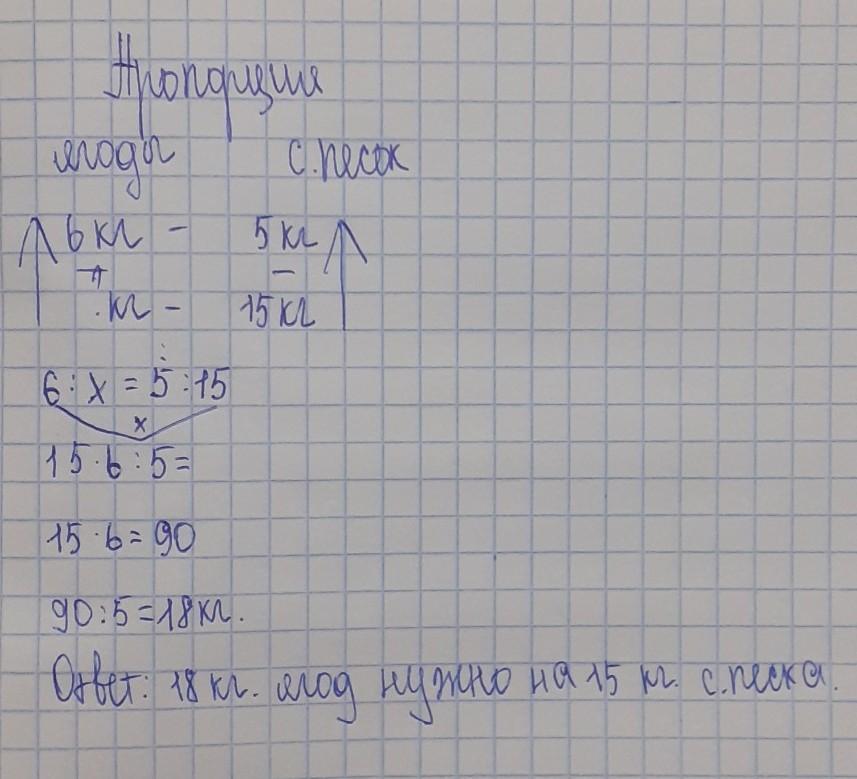 Пропорция
ягоды с.песок
6 кг - 5 кг
кг - 15 кг
6 : x = 5 : 15
x
15 · 6 : 5 =
15 · 6 = 90
90 : 5 = 18 кг.
Ответ: 18 кг. ягод нужно на 15 кг. с.песка.